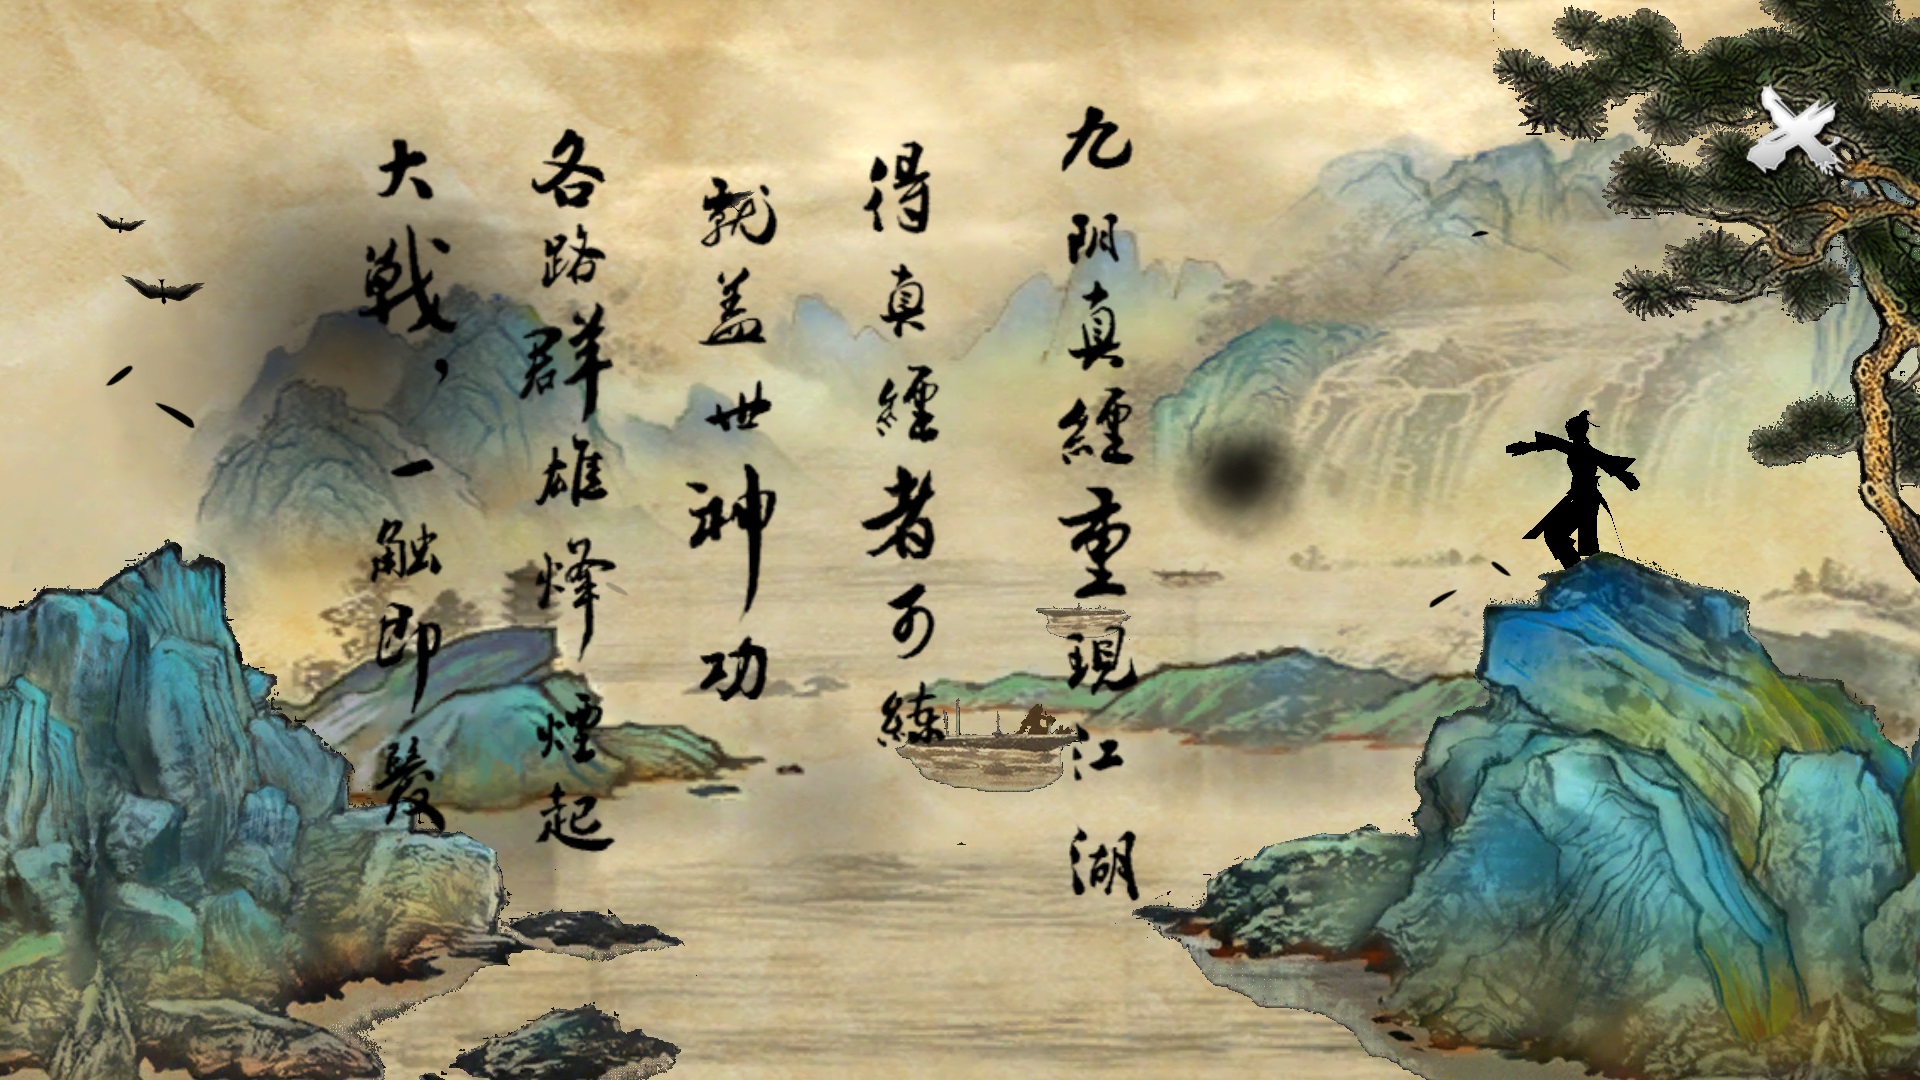 九阴真經重現江湖
得真經者可練
就盖世神功
各路群雄烽煙起
大戰，一触即發